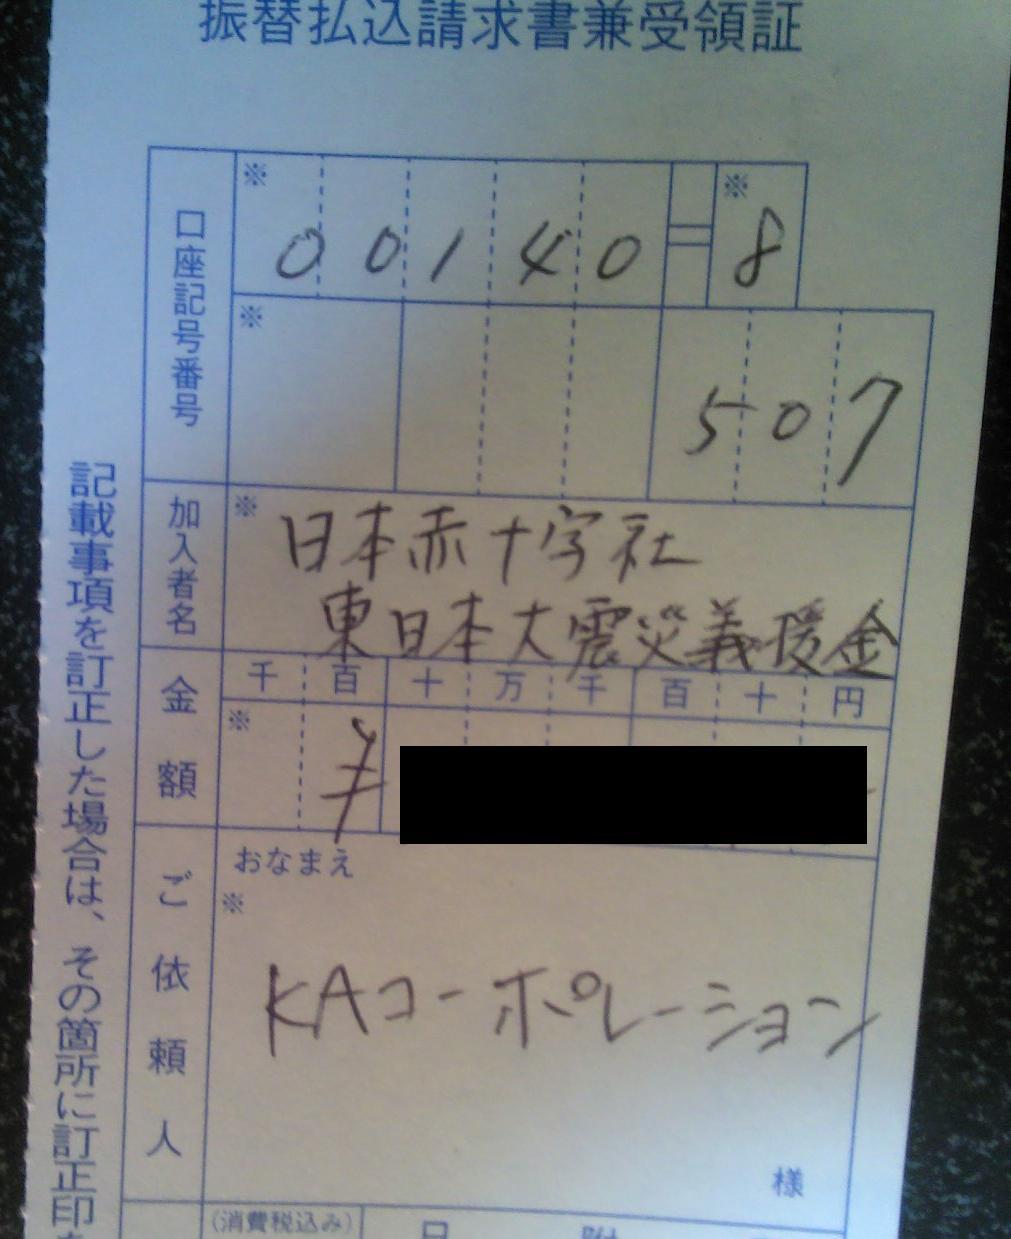 振替払込請求書兼受領証
口座記号番号
※ ※
00140=8
※
507
加入者名
※
日本赤十字社
東日本大震災義援金
金額
千百十万千百十円
※
¥
ご依頼人
おなまえ
※
KAコーポレーション
様
(消費税込み)
日附
記載事項を訂正した場合は、その箇所に訂正印を